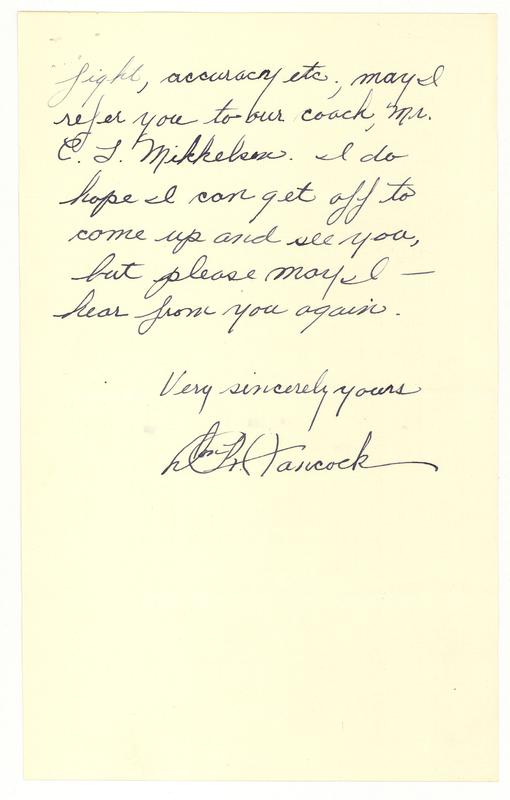 fight, accuracy etc., may I
refer you to our coach, Mr.
E. L. Mikkelsen. I do
hope I can get off to
come up and see you,
but please may I —
hear from you again.
Very sincerely yours
Hancock